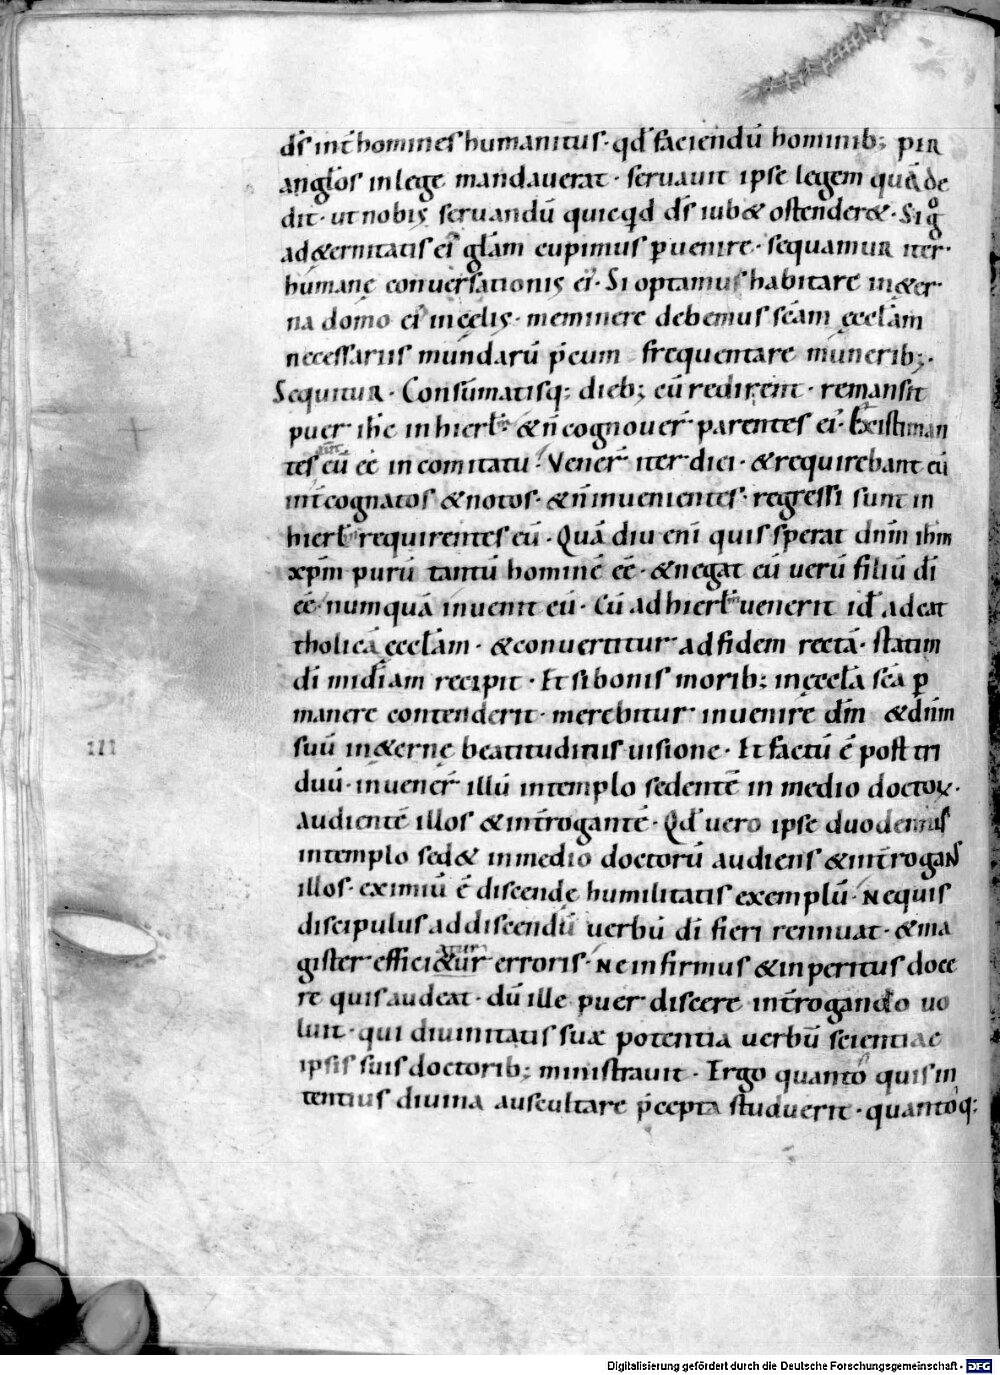 dṡ int̄ homines humanitus · qđ faciendū hominib; p in
angłos inlege mandauerat · seruauit ipse legem quā de
dit · ut nobis seruandū quicqđ dṡ iub& ostender& · Si g̊
ad &ernitatis ei᾽ głam cupimus ꝑuenire · sequamur iter
humanę conuersationis ei᾽ · Si optamus habitare in &er
na domo ei᾽ in cęlis · meminere debemus scām ęccłam
necessariis mundarū p̄cum frequentare munerib; ·
Sequitur · Consūmatisq; dieb; cū redirent · remansit
puer ihc in hierł · & n̄ cognouer̄ parentes ei᾽ · Existiman
tes eū eē in comitatu · Vener̄ iter diei · & requirebant eū
int̄ cognatos & notos · & n̄ inuenientes · regressi sunt in
hierł requirentes eū · Quā diu eni quis sperat dn̄m ihm
xp̄m purū tantū hominē eē · & negat eū uerū filiū dī
eē · numquā inuenit eū · Cū ad hierłm uenerit id᾽ ad cat
tholicā ęccłam · & conuertitur ad fidem rectā · statim
dī mid᾽iam recipit · Et si bonis morib; in ęccła scā ꝑ
manere contenderit · merebitur inuenire dm̄ & dn̄m
suū in &ernę beatitudinis uisione · Et factū ē post tri
duū · inuener̄ illū in templo sedentē in medio doctoꝝ ·
audientē illos & int̄rogantē · Qđ uero ipse duodennis
in templo sed& in medio doctorū audiens & int̄rogans
illos · eximiū ē discendę humilitatis exemplū · Ne quis
discipulus ad discendū uerbū dī fieri rennuat · & ma
gister effici&ur erroris · Ne infirmus & inperitus doce
re quis audeat · dū ille puer discere int̄rogando uo
luit · qui diuinitatis suæ potentia uerbū scientiae
ipsis suis doctorib; ministrauit · Ergo quanto quis in
tentius diuina auscultare p̄cepta studuerit · quantoq;
Digitalisierung gefördert durch die Deutsche Forschungsgemeinschaft - DFG